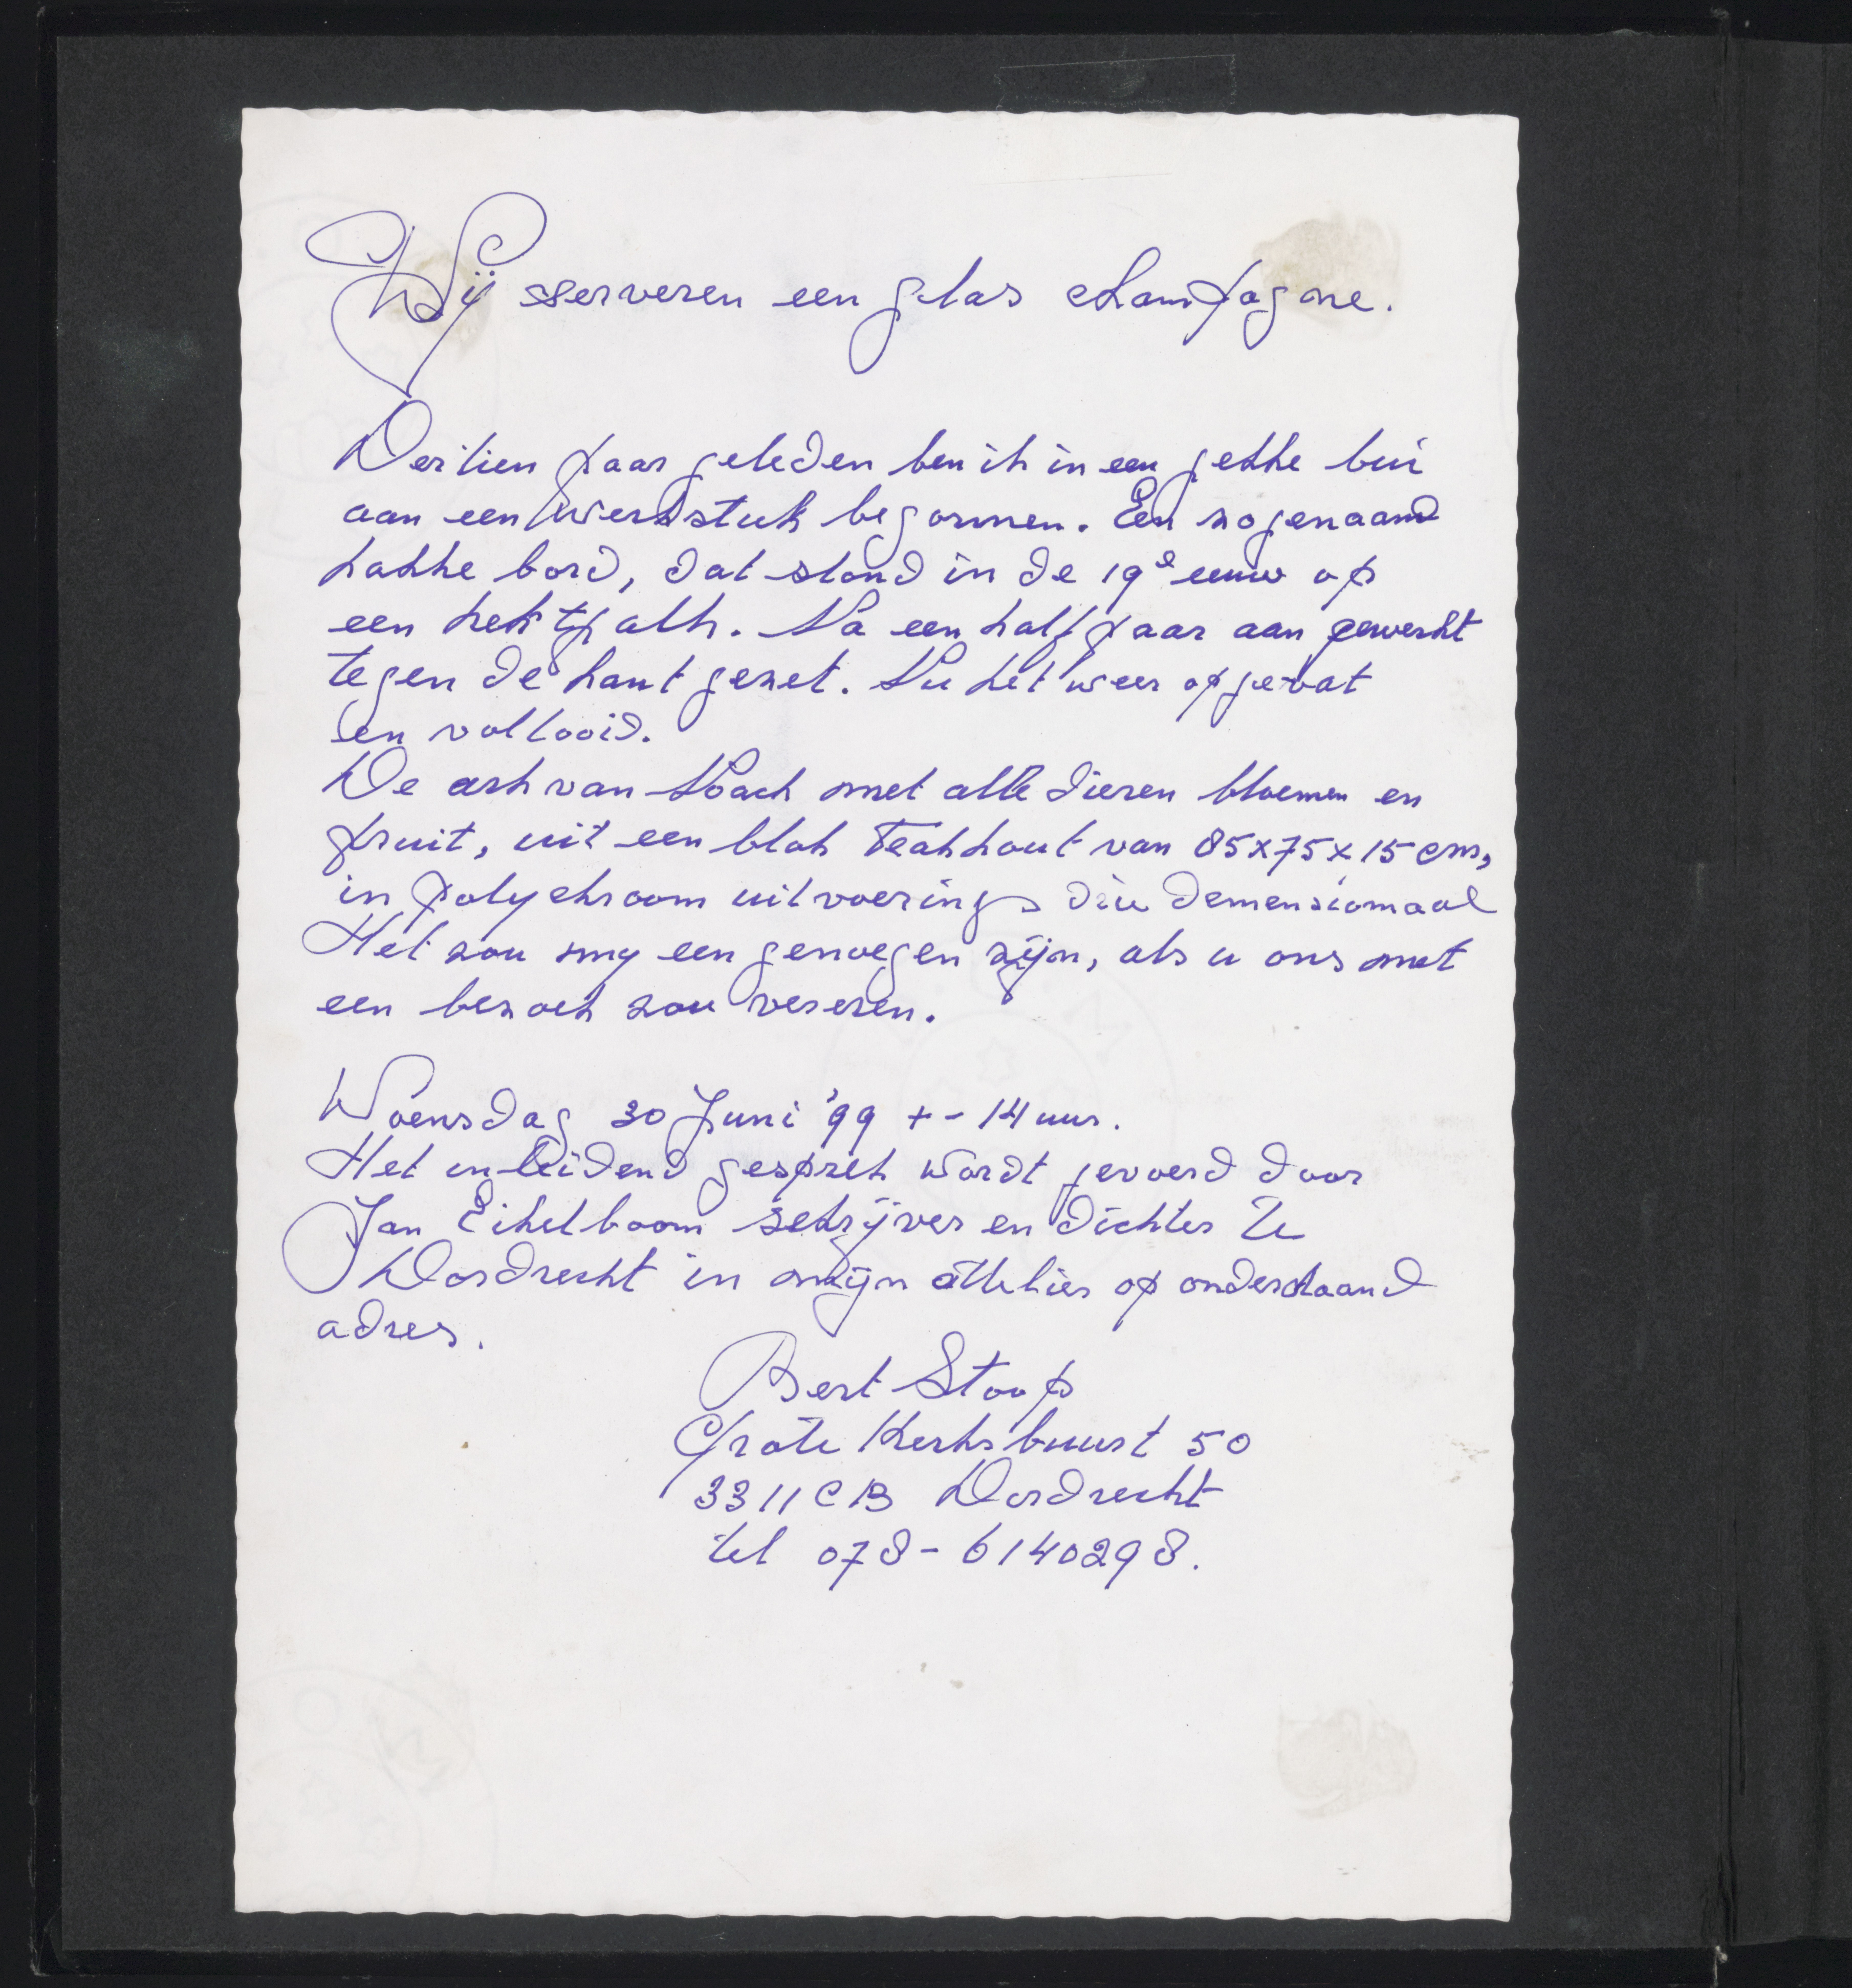 Wij serveren een glas champagne.
Dertien jaar geleden ben ik in een gekke bui
aan een werkstuk begonnen. Een zogenaamd
hakke bord, dat stond in de 19e eeuw op
een hektjalk. Na een half jaar aan gewerkt
tegen de kant gezet. Nu het weer opgevat
en voltooid.
De ark van Noach met alle dieren bloemen en
fruit, uit een blok Teakhout van 85x75x15 cm,
in polychroom uitvoering drie demensiomaal
Het zou my een genoegen zijn, als u ons met
een bezoek zou vereren.
Woensdag 30 Juni '99 +- 14 uur.
Het inleidend gesprek wordt gevoerd door
Jan Eikelboom schrijver en dichter te
Dordrecht in mijn attelier op onderstaand
adres.
Bert Stoop
Grote Kerksbuurt 50
3311 CB Dordrecht
tel 078-6140298.